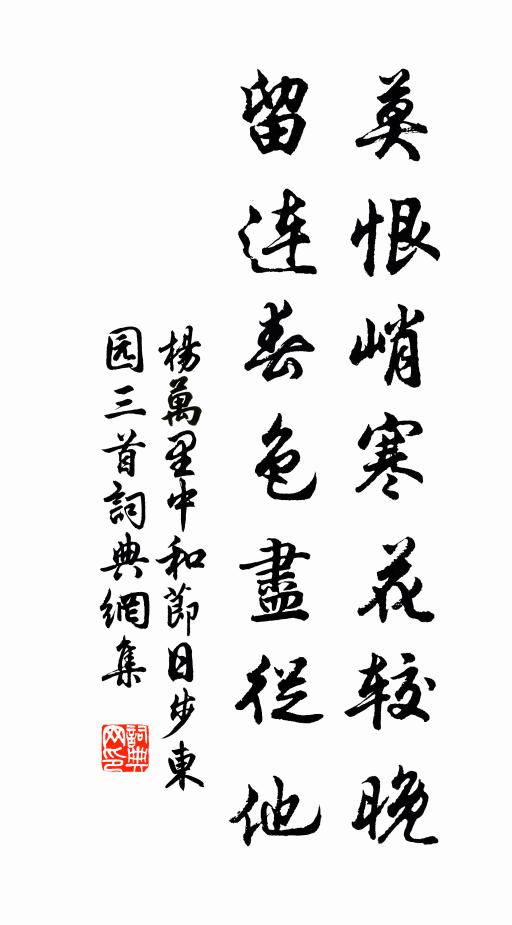 莫恨峭寒花较晚
留连春色盡從他
楊萬里中和節日步東
园三首詞典網集
詞典
网印